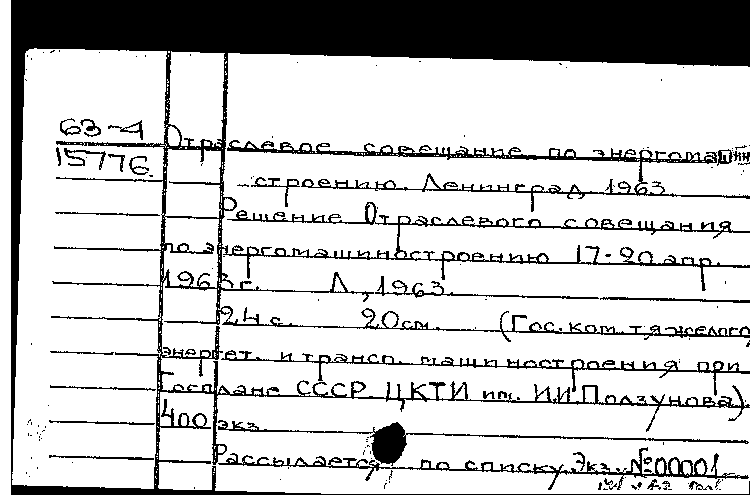 63-4
15776
Отраслевое совещание по энергомашин
строению. Ленинград, 1963.
Решение Отраслевого совещания
по энергомашиностроению 17-20 апр.
1963 г. Л., 1963.
24 с. 20 см. (Гос. ком. тяжелого,
энергет. и трансп. машиностроения при
Госплане СССР. ЦКТИ им. И.И. Ползунова).
400 экз.
Рассылается по списку. Экз. №00001